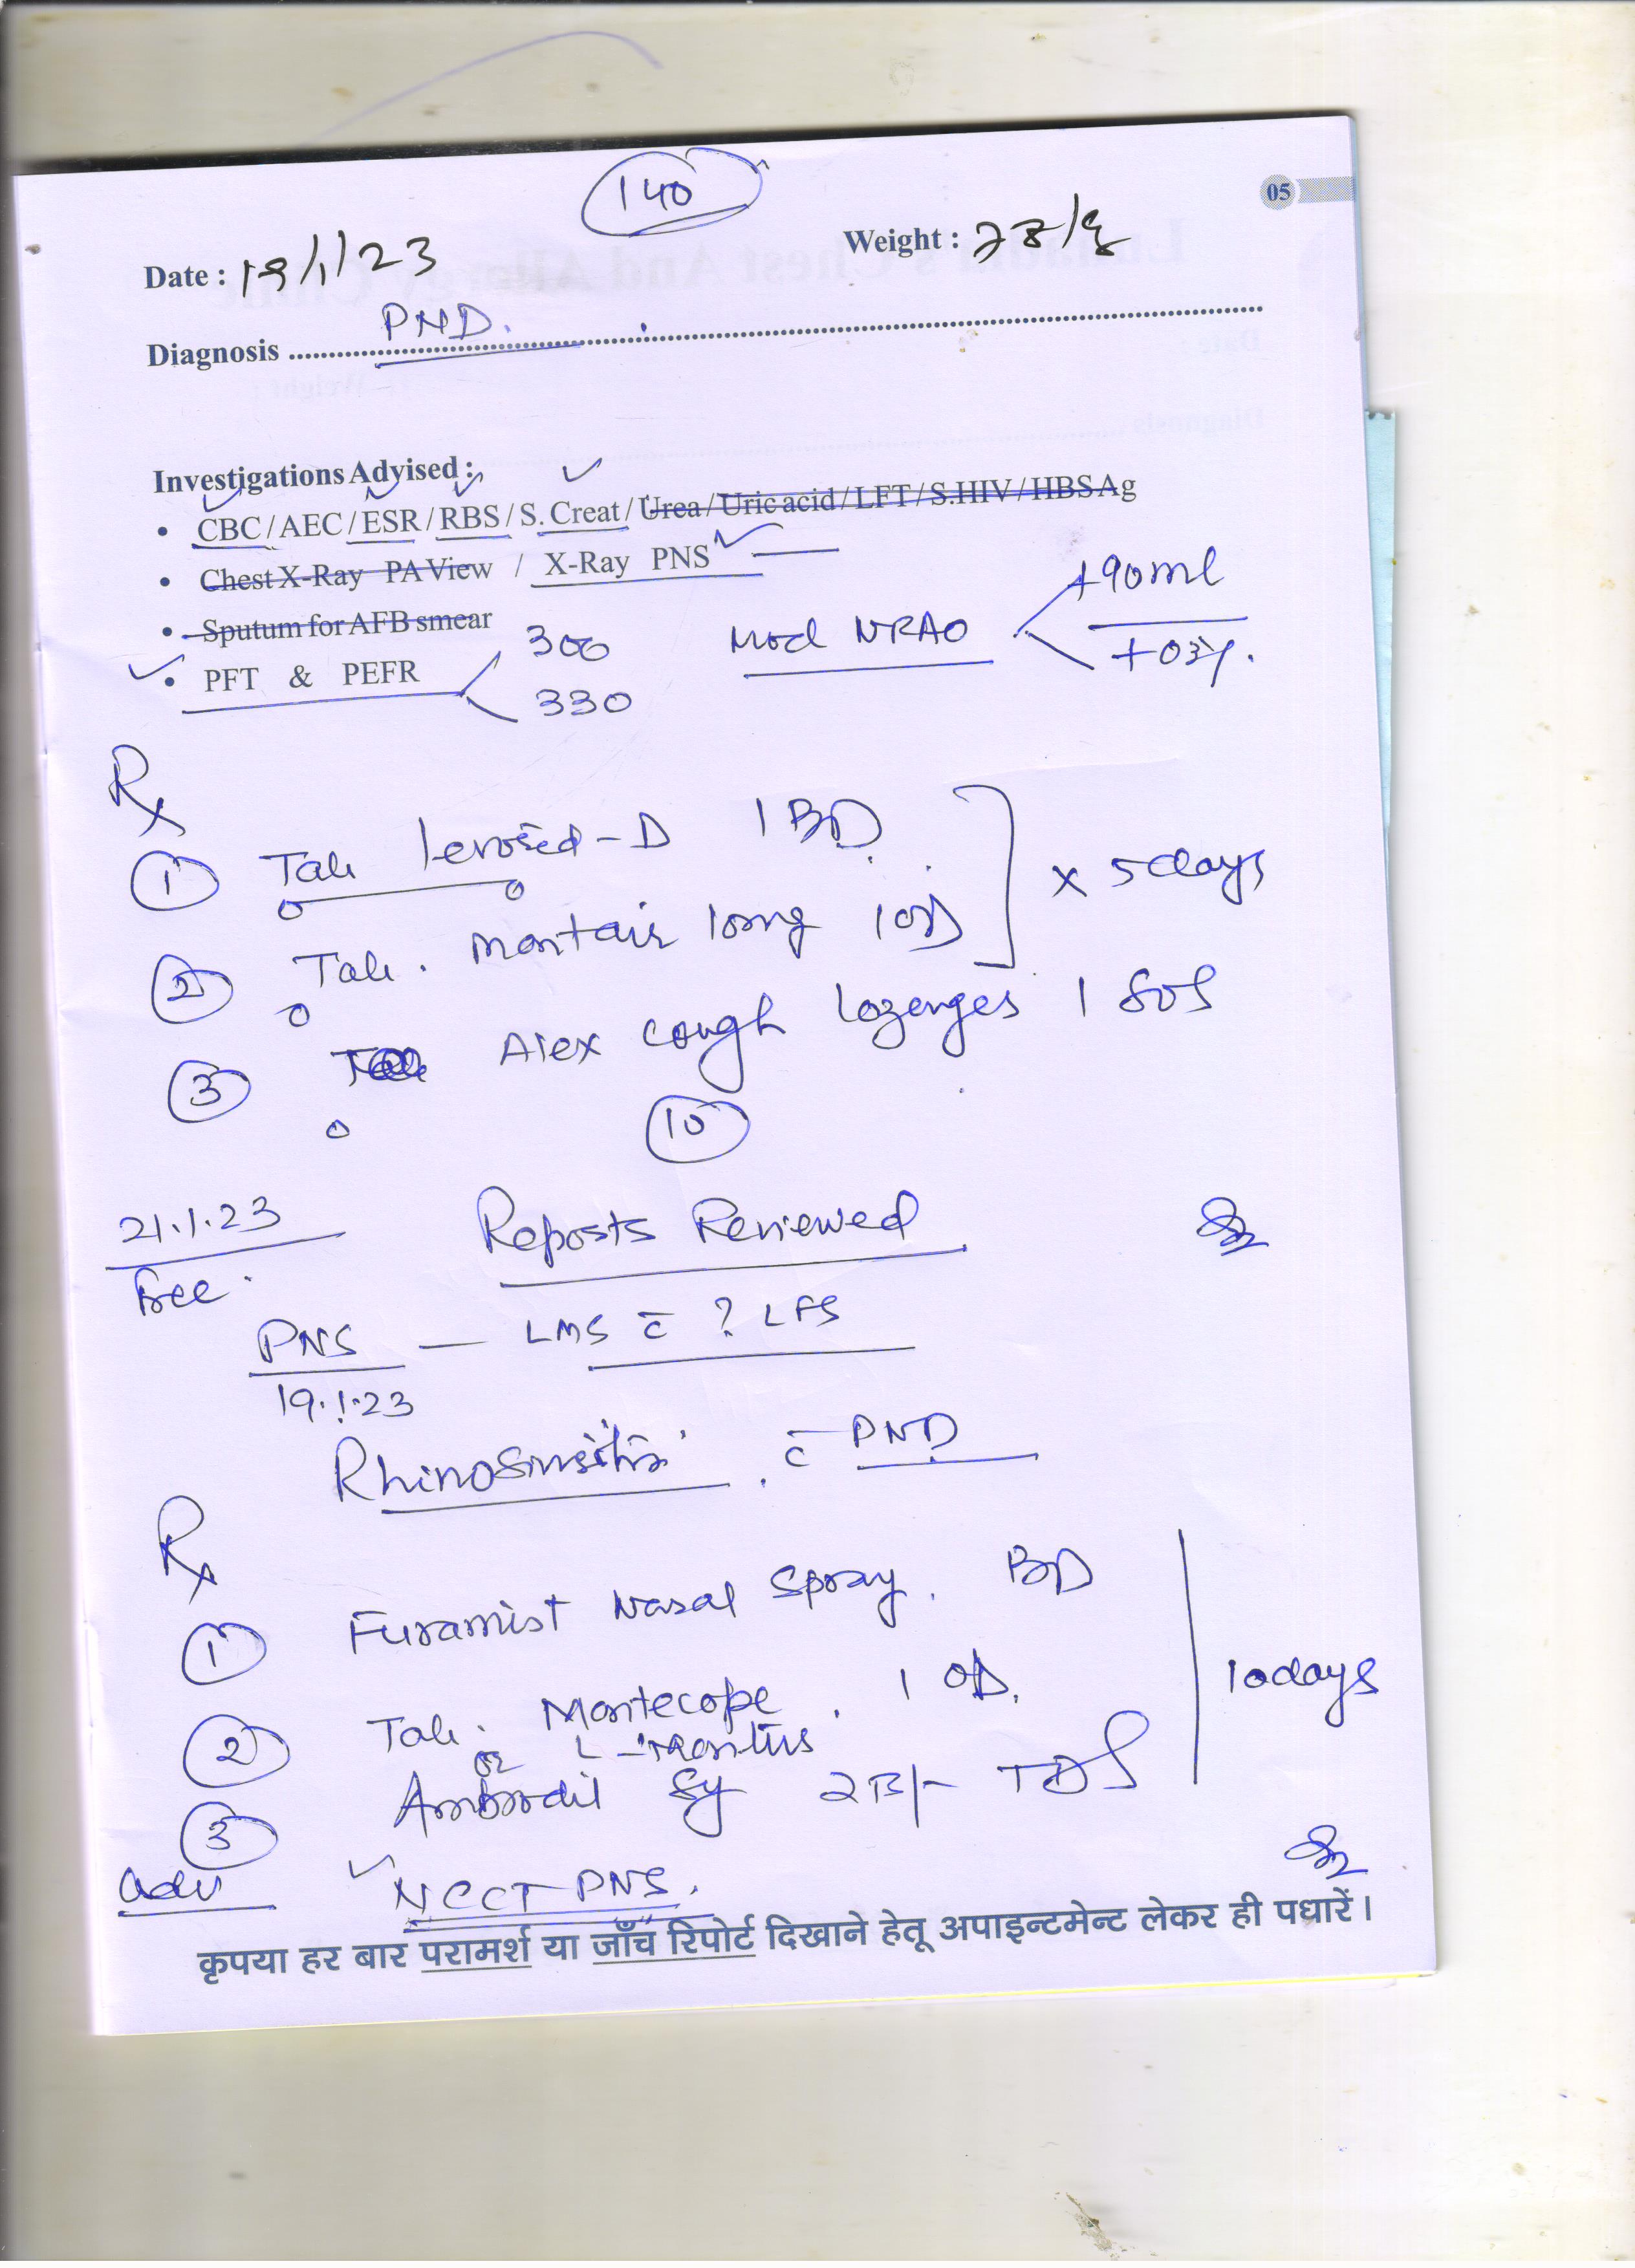 140
05
Date : 19/1/23
Weight :
Diagnosis PND.
Investigations Advised :
• CBC / AEC / ESR / RBS / S. Creat / Urea / Uric acid / LFT / S.HIV / HBS Ag
• Chest X-Ray PA View / X-Ray PNS
• Sputum for AFB smear
• PFT & PEFR 300 330 Mod NRAO +90ml +03%.
Rx
1 Tab - D 1 BD
2 Tab. Montair long 1 OD x 5 days
3 Alex cough lozenges 1 SOS
10
21.1.23 Reports Reviewed
Free.
PNS — LMS c̄ ? LFS
19.1.23
Rhinosinusitis c̄ PND
Rx
1 Furamist Nasal Spray. BD
2 Tab. Montecope. 1 OD. 10 days
or L-montus
3 Ambrodil Sy TDS
Adv NCCT PNS.
कृपया हर बार परामर्श या जाँच रिपोर्ट दिखाने हेतू अपाइन्टमेन्ट लेकर ही पधारें।